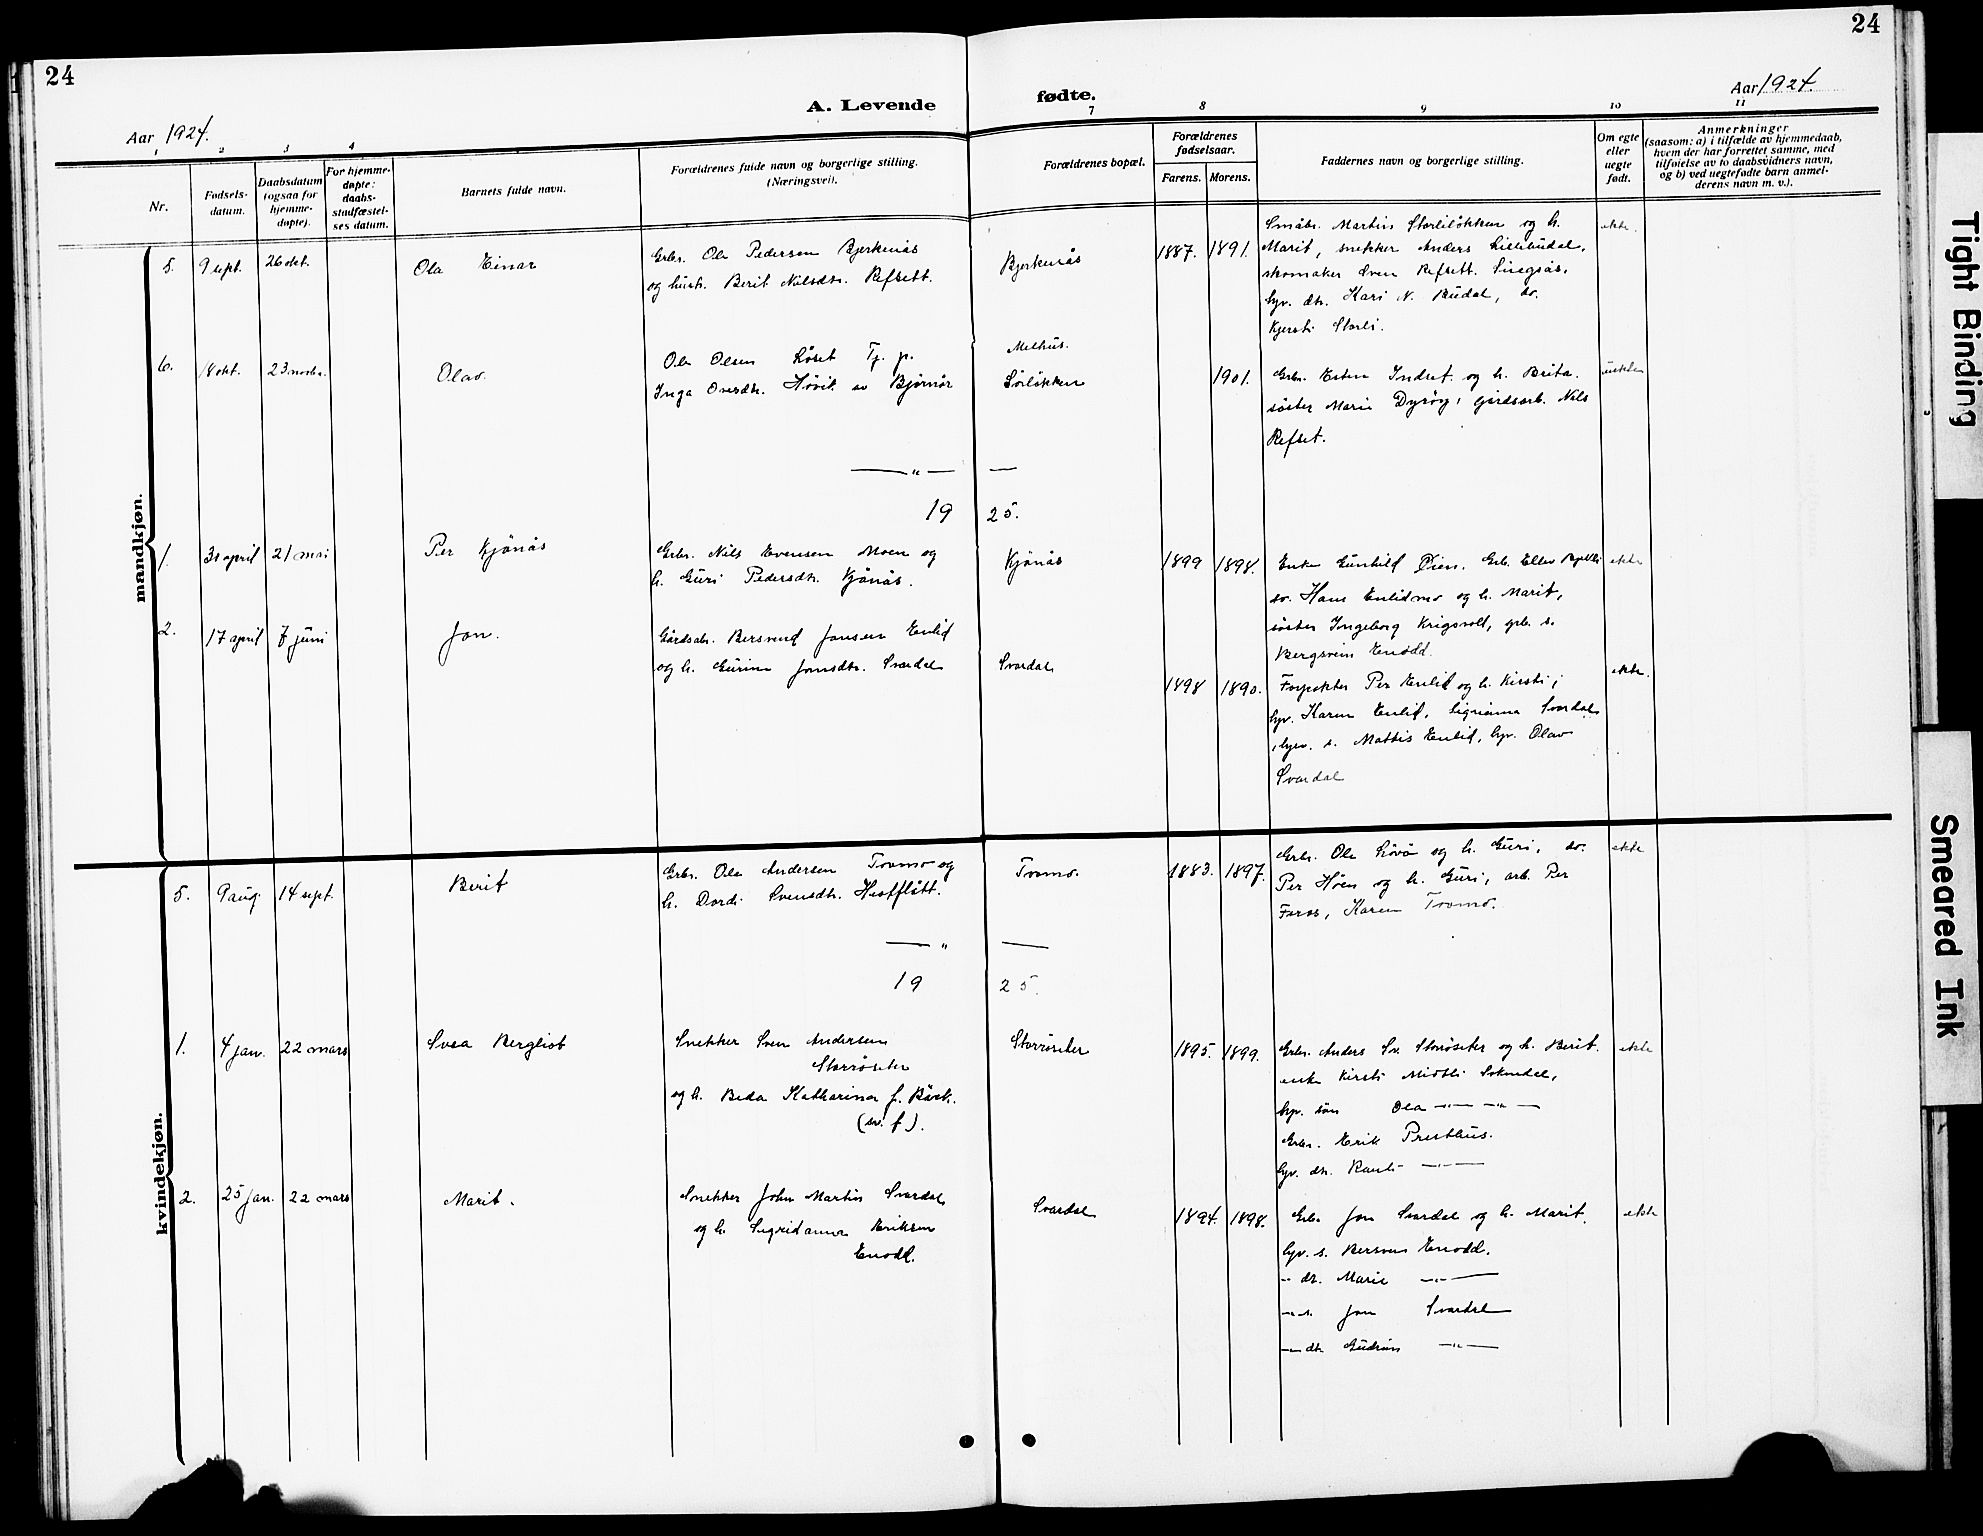 24
24
A. Levende
fødte.
Aar 1924.
Aar 1924.
1 2 3 4 7 8 9 10 11
Nr.
Fødsels-
datum.
Daabsdatum
(ogsaa for
hjemme-
døpte).
For hjemme-
døpte:
daabs-
stadfæstel-
ses datum.
Barnets fulde navn.
Forældrenes fulde navn og borgerlige stilling.
(Næringsvei).
Forældrenes bopæl.
Forældrenes
fødselsaar.
Farens. Morens.
Faddernes navn og borgerlige stilling.
Om egte
eller
uegte
født.
Anmerkninger
(saasom: a) i tilfælde av hjemmedaab,
hvem der har forrettet samme, med
tilføielse av to daabsvidners navn,
og b) ved uegtefødte barn anmel-
derens navn m. v.).
mandkjøn.
5. 9 sept. 26 okt. Ola Einar
Grbr. Ole Pedersen Bjerkenås
og hustr. Berit Nilsdtr. Refsett.
Bjerkenås
1887. 1891.
Småbr. Martin Storliløkken og h.
Marit, snekker Anders Lillebudal,
skomaker Sven Refsett. Singsås,
ugv. dtr. Kari N. Budal, do.
Kjersti Storli.
ekte.
6. 18 okt. 23 novbr. Olav.
Ole Olsen Løset Tj. p.
Inga Oversdtr. Høvik av Bjørnør
Melhus.
Sørløkken
1901.
Grbr. Esten Indset og h. Brita.
søster Marie Dyrøy, gårdsarb. Nils
Refset.
uekte
— " — —
19 25.
1. 30 april 21 mai Per Kjønås
Grbr. Nils Evensen Moen og
h. Guri Pedersdtr. Kjønås.
Kjønås
1899 1898.
Enke Gunhild Øien. Grb. Ellev
do. Hans Enlidmo og h. Marit,
søster Ingeborg Krigsvoll, grb. s.
Bergsvein Enodd.
ekte
2. 17 april 7 juni Jon.
Gårdsbr. Bersvend Jonsen Enlid
og h. Gurine Jonsdtr. Svardal
Svardal
1898 1890.
Forpakter Per Enlid og h. Kirsti;
ugv. Karen Enlid, Sigrianna Svardal
, ugv. s. Mattis Enlid, ugv. Olav
Svardal
ekte.
kvindekjøn.
5. 9 aug. 14 sept. Berit
Grbr. Ole Andersen Tovmo og
h. Dordi Svensdtr. Hestflått.
Tovmo.
1883. 1897.
Grbr. Ole Løvø og h. Guri, do.
Per Høen og h. Guri, arb. Per
Foros, Karen Tovmo.
ekte
— " —
19 25.
1. 4 jan. 22 mars Svea Bergliot
Snekker Sven Andersen
Storrøseter
og h. Beda Katharina f. Bäck.
(sv. f).
Storrøseter
1895. 1899.
Grbr. Anders Sv. Storrøseter og h. Berit.
enke Kirsti Midtli Soknedal,
ugv. søn Ola —"— —"—
Grbr. Erik Presthus.
ugv. dtr. Randi —"—
ekte
2. 25 jan. 22 mars Marit.
Snekker John Martin Svardal
og h. Sigridanna Eriksen
Enodd.
Svardal
1894. 1898.
Grbr Jon Svardal og h. Marit.
ugv. s. Bersven Enodd.
-"- dt. Marie —"—
-"- s. Jon Svardal
-"- dtr Gudrun —"—
ekte
Tight Binding
Smeared Ink